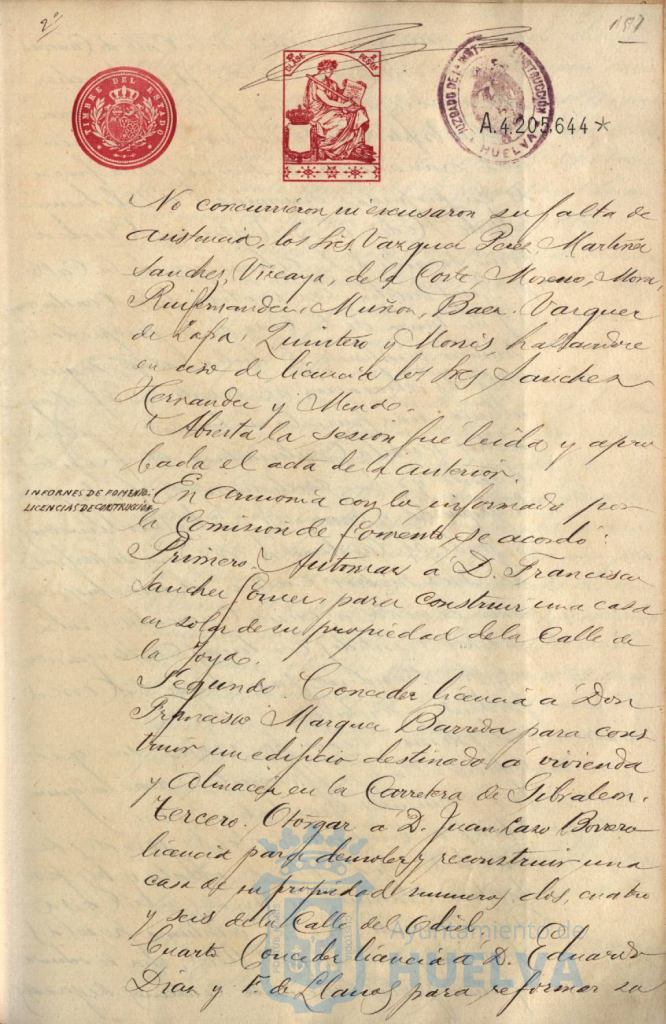 2º
187
TIMBRE DEL ESTADO
CLASE
JUZGADO DE 1ª INST
INSTRUCCIÓN
HUELVA
A.4.205,644*
No concurrieron ni excusaron su falta de
asistencia, los Sres Vazquez Perez Martinez
Sanchez, Vizcaya, de la Corte Moreno, Mora,
Ruifernandez, Muñoz, Baez. Vazquez
de Zapa, Quintero y Monis, hallandose
en uso de licencia los Sres Sanchez
Hernandez y
Abierta la sesión fué leida y apro
bada el acta de la anterior.
INFORMES DE FOMENTO.
LICENCIAS DE CONSTRUCCIÓN
En armonia con lo informado por
la Comisión de Fomento se acordó:
Primero. Autorizar á D. Francisco
Sanchez Gomez, para construir una casa
en solar de su propiedad de la Calle de
la Joya.
Segundo. Conceder licencia á Don
Francisco Marquez Barreda para cons
truir un edificio destinado á vivienda
y Almacén en la Carretera de Gibraleon.
Tercero. Otorgar á D. Juan Lazo Bovero
licencia para demoler y reconstruir una
casa de su propiedad numeros dos, cuatro
y seis de la Calle del Odiel.
Cuarto Conceder licencia á D. Eduardo
Dias y F. de Llanos para reformar la
Ayuntamiento de
HUELVA